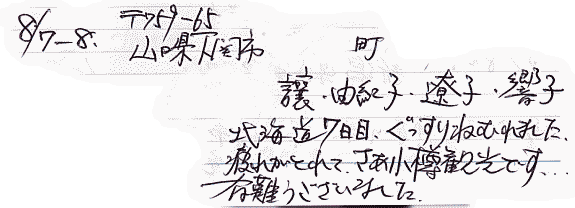 8/7-8. 〒759-65
山口県下関市 町
譲・由紀子・遼子・響子
北海道7日目、ぐっすりねむれました。
疲れがとれて、さあ小樽観光です…
有難うございました。